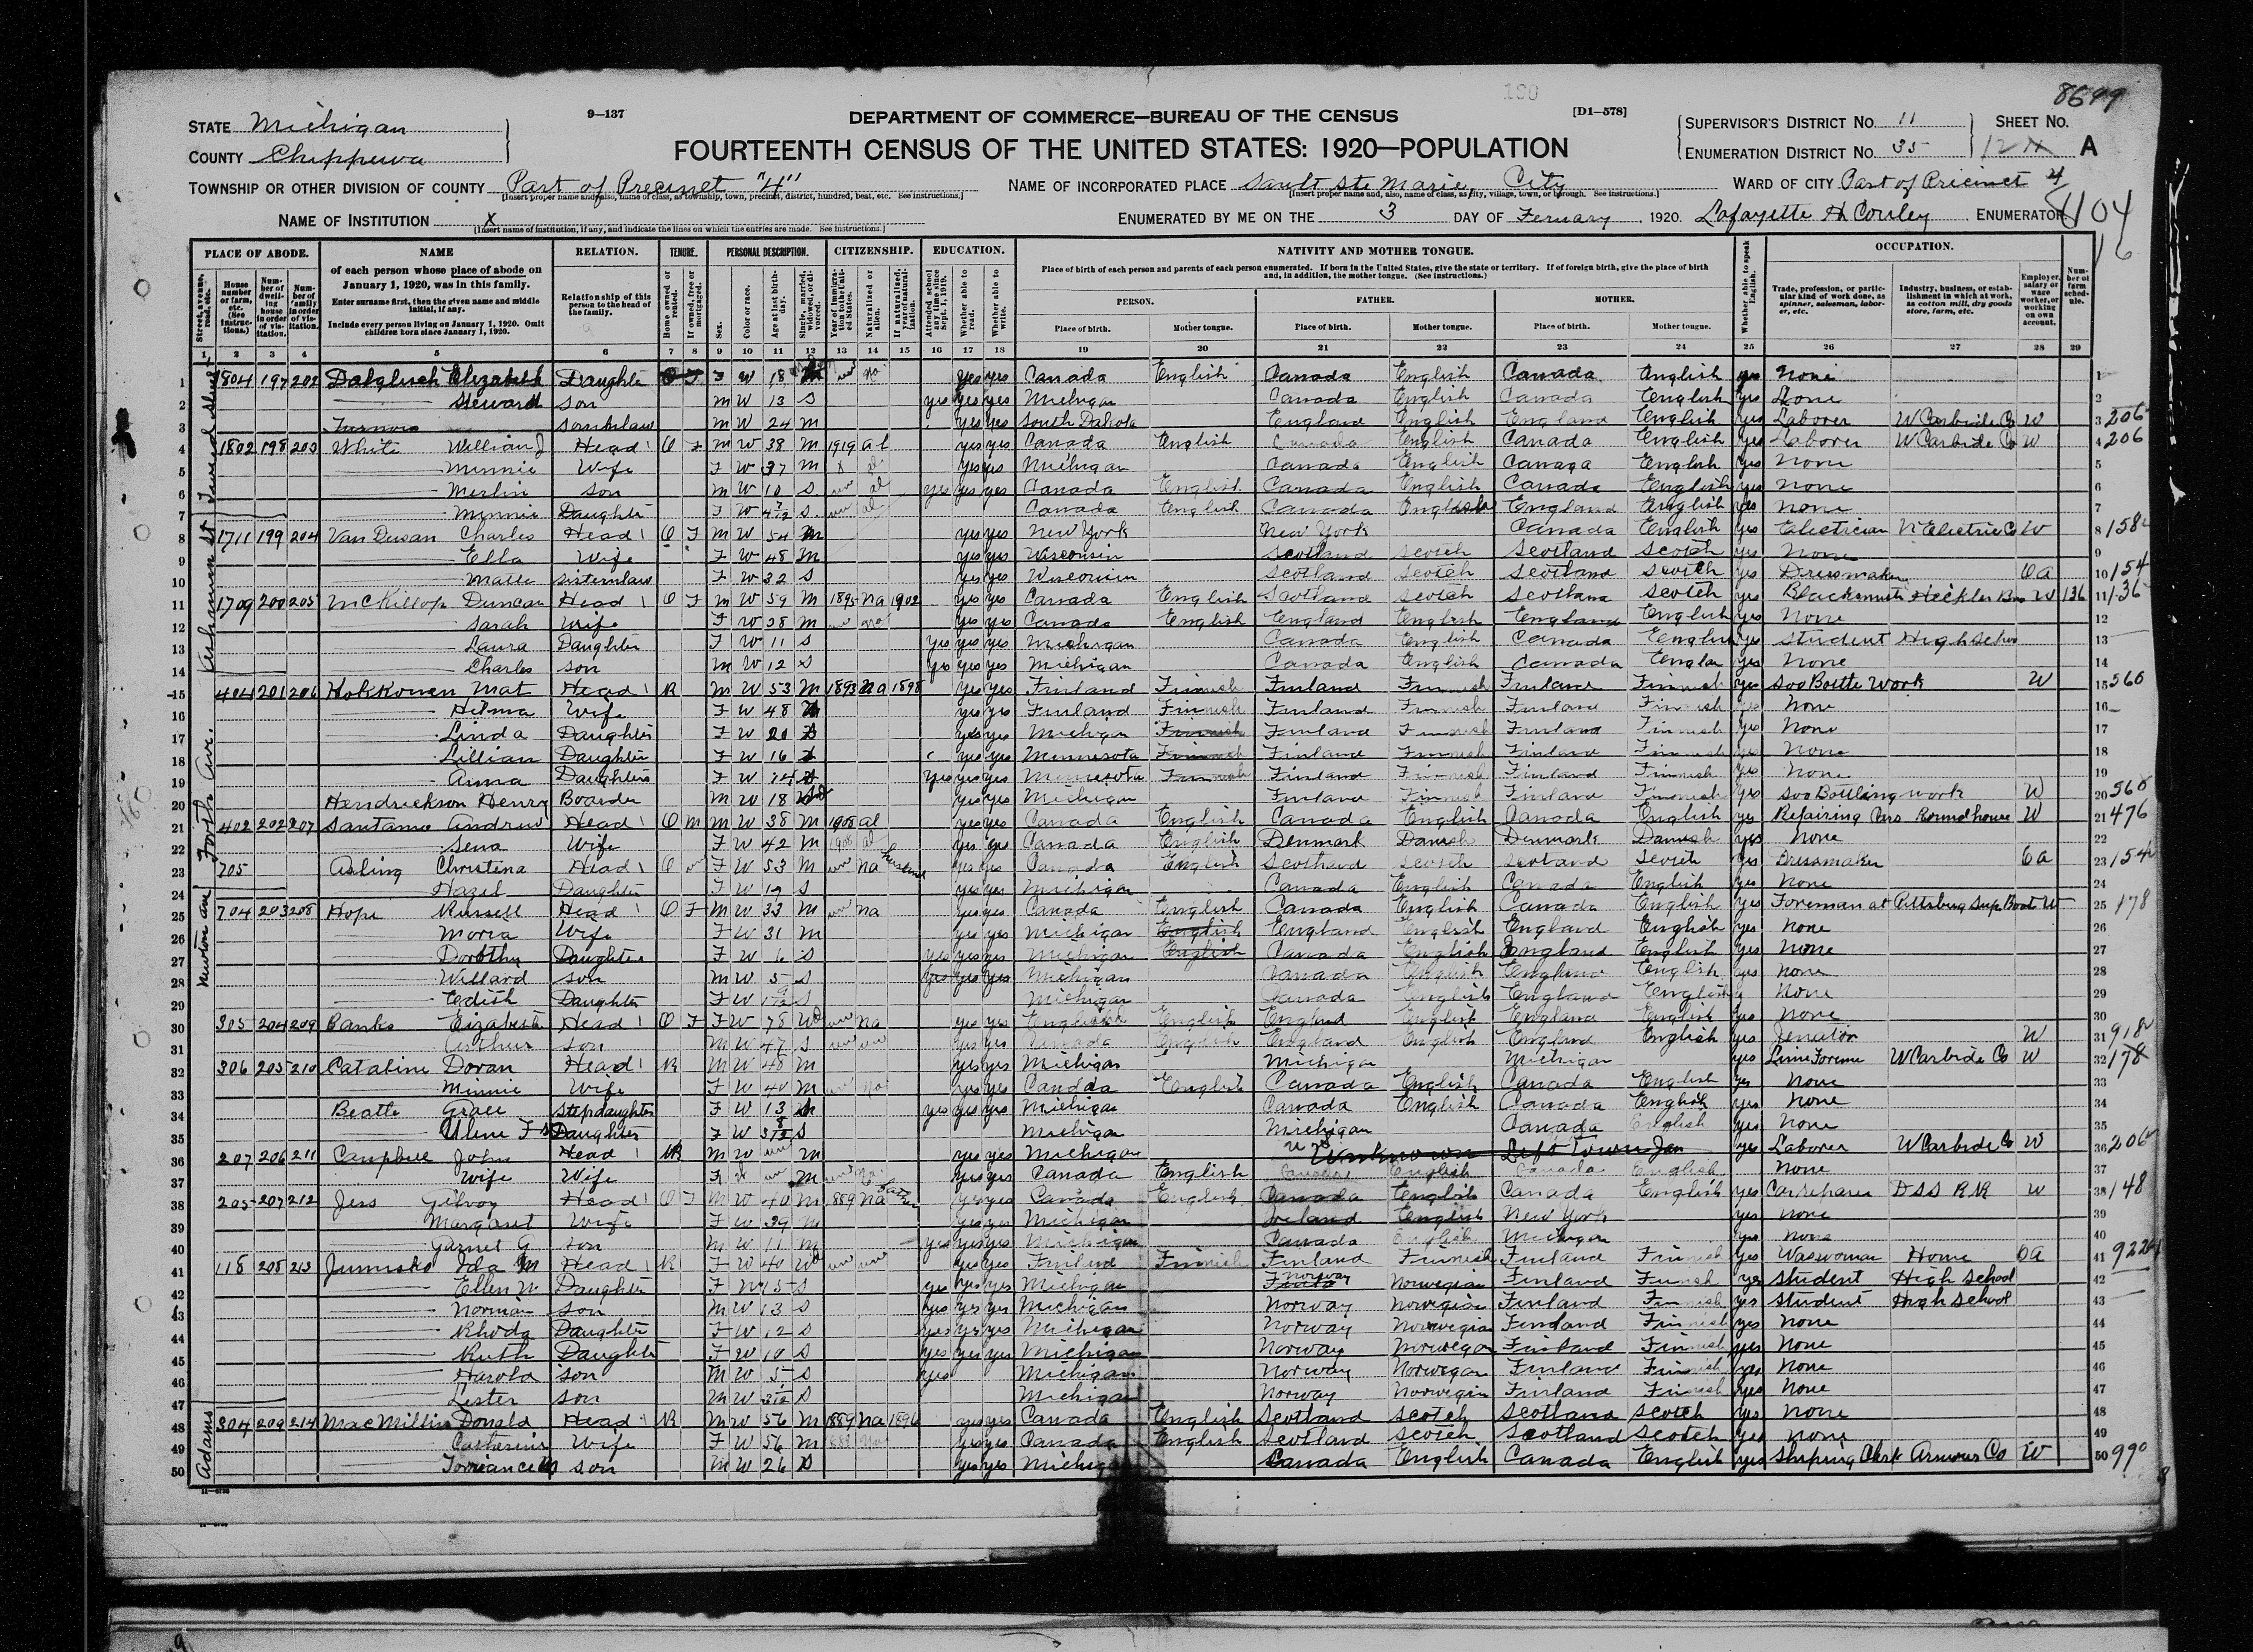 8699
190
9—137
DEPARTMENT OF COMMERCE—BUREAU OF THE CENSUS
[D1—578]
STATE Michigan
COUNTY Chippewa
FOURTEENTH CENSUS OF THE UNITED STATES: 1920—POPULATION
SUPERVISOR'S DISTRICT NO. 11
ENUMERATION DISTRICT NO. 35
SHEET NO.
12 A
TOWNSHIP OR OTHER DIVISION OF COUNTY Part of Precinct "4"
[Insert proper name and, also, name of class, as township, town, precinct, district, hundred, beat, etc. See instructions.]
NAME OF INCORPORATED PLACE Sault Ste Marie, City
[Insert proper name and, also, name of class, as city, village, town, or borough. See instructions.]
WARD OF CITY Part of Pricinct 4
NAME OF INSTITUTION X
[Insert name of institution, if any, and indicate the lines on which the entries are made. See instructions.]
ENUMERATED BY ME ON THE 3 DAY OF Feruary, 1920. Lafayette H Conley ENUMERATOR
PLACE OF ABODE. NAME RELATION. TENURE. PERSONAL DESCRIPTION. CITIZENSHIP. EDUCATION. NATIVITY AND MOTHER TONGUE. OCCUPATION.
of each person whose place of abode on January 1, 1920, was in this family.
Enter surname first, then the given name and middle initial, if any.
Include every person living on January 1, 1920. Omit children born since January 1, 1920.
Relationship of this person to the head of the family.
Place of birth of each person and parents of each person enumerated. If born in the United States, give the state or territory. If of foreign birth, give the place of birth and, in addition, the mother tongue. (See instructions.)
PERSON. FATHER. MOTHER.
Place of birth. Mother tongue. Place of birth. Mother tongue. Place of birth. Mother tongue.
1 2 3 4 5 6 7 8 9 10 11 12 13 14 15 16 17 18 19 20 21 22 23 24 25 26 27 28 29
1 1804 197 202 Dalglish Elizabeth Daughte F W 18 yes yes Canada English Canada English Canada English yes None
2 Steward Son M W 13 S yes yes yes Michigan Canada English Canada English yes None
3 Soninlaw M W 24 M yes yes South Dakota England English England English yes Laborer W Carbide Co W 206
4 1802 198 203 White William J Head O F M W 38 M 1919 al yes yes Canada English Canada English Canada English yes Laborer W Carbide Co W 206
5 Minnie Wife F W 37 M X al yes yes Michigan Canada English Canada English yes None
6 Merlin Son M W 10 S al yes yes yes Canada English Canada English Canada English yes None
7 Minnie Daughter F W S al Canada English Canada English England English yes None
8 1711 199 204 Van Dusan Charles Head O F M W 54 M yes yes New York New York Canada English yes Electician N Electric Co W 158
9 Ella Wife F W 48 M yes yes Wisconsin Scotland Scotch Scotland Scotch yes None
10 Sisterinlaw F W 32 S yes yes Wisconsin Scotland Scotch Scotland Scotch yes Dressmaker OA 154
11 1709 200 205 McKillop Duncan Head O F M W 59 M 1895 na 1902 yes yes Canada English Scotland Scotch Scotland Scotch yes Blacksmith W 136 136
12 Sarah Wife F W 38 M yes yes Canada English England English England English yes None
13 Laura Daughter F W 11 S yes yes yes Michigan Canada English Canada English yes Student High School
14 Charles Son M W 12 S yes yes yes Michigan Canada English Canada yes None
15 404 201 206 Hokkonen Mat Head R M W 53 M 1893 na 1898 yes yes Finland Finnish Finland Finnish Finland Finnish yes Soo Bottle Work W 560
16 Hilma Wife F W 48 yes yes Finland Finnish Finland Finnish Finland Finnish None
17 Linda Daughter F W 20 S yes yes Michigan Finnish Finland Finnish Finland Finnish yes None
18 Lillian Daughter F W 16 S yes yes Minnesota Finnish Finland Finnish Finland Finnish yes None
19 Anna Daughter F W 14 S yes yes yes Minnesota Finnish Finland Finnish Finland Finnish yes None
20 Hendrickson Henry Boarder M W 18 yes yes Michigan Finland Finnish Finland Finnish yes Soo Bottling work W 560
21 402 202 207 Andrew Head O M M W 38 M 1908 al yes yes Canada English Canada English Canada English yes Repairing Cars Roundhouse W 476
22 Sena Wife F W 42 M 1908 al yes yes Canada English Denmark Danish Denmark Danish yes None
23 705 Asling Christina Head O F W 53 M na yes yes Canada English Scotland Scotch Scotland Scotch yes Dressmaker OA 154
24 Hazel Daughter F W 19 S yes yes Michigan Canada English Canada English yes None
25 704 203 208 Hope Russell Head O F M W 33 M na yes yes Canada English Canada English Canada English yes Foreman at Pittsburg Sup Boat W 178
26 Wife F W 31 M yes yes Michigan English England English England English yes None
27 Dorothy Daughter F W 6 S yes yes yes Michigan English Canada English England English yes None
28 Willard Son M W 5 S yes yes yes Michigan Canada English England English yes None
29 Edith Daughter F W S Michigan Canada English England English None
30 305 204 209 Banks Elizabeth Head O F F W 78 Wd na yes yes English English England English England English yes None
31 Arthur Son M W 47 S yes yes Canada English England English England English yes W 918
32 306 205 210 Cataline Doran Head R M W 48 M yes yes Michigan Michigan Michigan yes Lime Foreme W Carbide Co W 178
33 Minnie Wife F W 40 M yes yes Canada English Canada English Canada English yes None
34 Beatle Grace Stepdaughter F W 13 yes yes yes Michigan Canada English Canada English yes None
35 Daughter F W S Michigan Michigan Canada English yes None
36 207 206 211 Campbell John Head R M W M yes yes Michigan Unknown Left Town Jan yes Laborer W Carbide Co W 206
37 Wife Wife F W M yes yes Canada English Canada English Canada English None
38 205 207 212 Jess Gilroy Head O F M W 40 M 1889 na yes yes Canada English Canada English Canada English yes Carrepairer DSS RR W 148
39 Margaret Wife F W 39 M yes yes Michigan Ireland English New York yes None
40 Garnet G Son M W 11 yes yes yes Michigan Canada English Michigan yes None
41 118 208 213 Jumisko Ida M Head R F W 40 Wd yes yes Finland Finnish Finland Finnish Finland Finnish yes Waswoman Home OA 922
42 Ellen W Daughter F W 15 S yes yes yes Michigan Norway Norwegian Finland Finnish yes Student High School
43 Norman Son M W 13 S yes yes yes Michigan Norway Norwegian Finland Finnish yes Student High School
44 Rhoda Daughter F W 12 S yes yes yes Michigan Norway Norwegian Finland Finnish yes None
45 Ruth Daughter F W 10 S yes yes yes Michigan Norway Norwegian Finland Finnish yes None
46 Harold Son M W 5 S yes Michigan Norway Norwegian Finland Finnish yes None
47 Lester Son M W S Michigan Norway Norwegian Finland Finnish yes None
48 304 209 214 MacMillin Donald Head R M W 56 M 1889 na 1896 yes yes Canada English Scotland Scotch Scotland Scotch yes None
49 Catherine Wife F W 56 M 1889 yes yes Canada English Scotland Scotch Scotland Scotch yes None
50 Torriance M Son M W 26 S yes yes Michigan Canada English Canada English yes Shiping Clerk Armour Co W 990